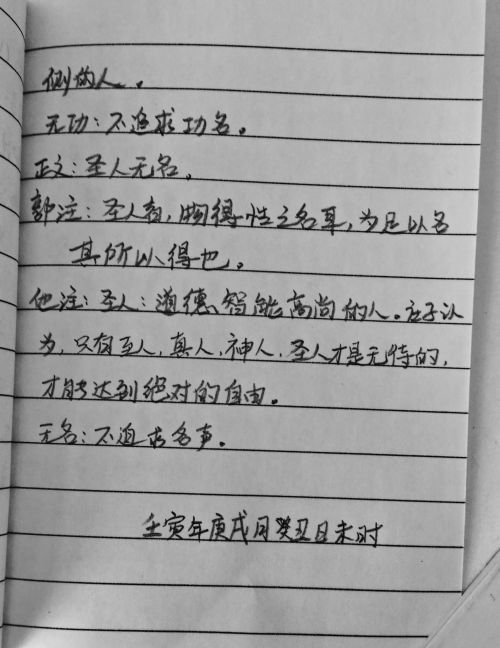 测的人。
无功：不追求功名。
正文：圣人无名。
郭注：圣人者，物得性之名耳，为足以名
其所以得也。
他注：圣人：道德智能高尚的人。庄子认
为，只有至人，真人，神人，圣人才是无待的，
才能达到绝对的自由。
无名：不追求名声。
壬寅年庚戌月癸丑日未时